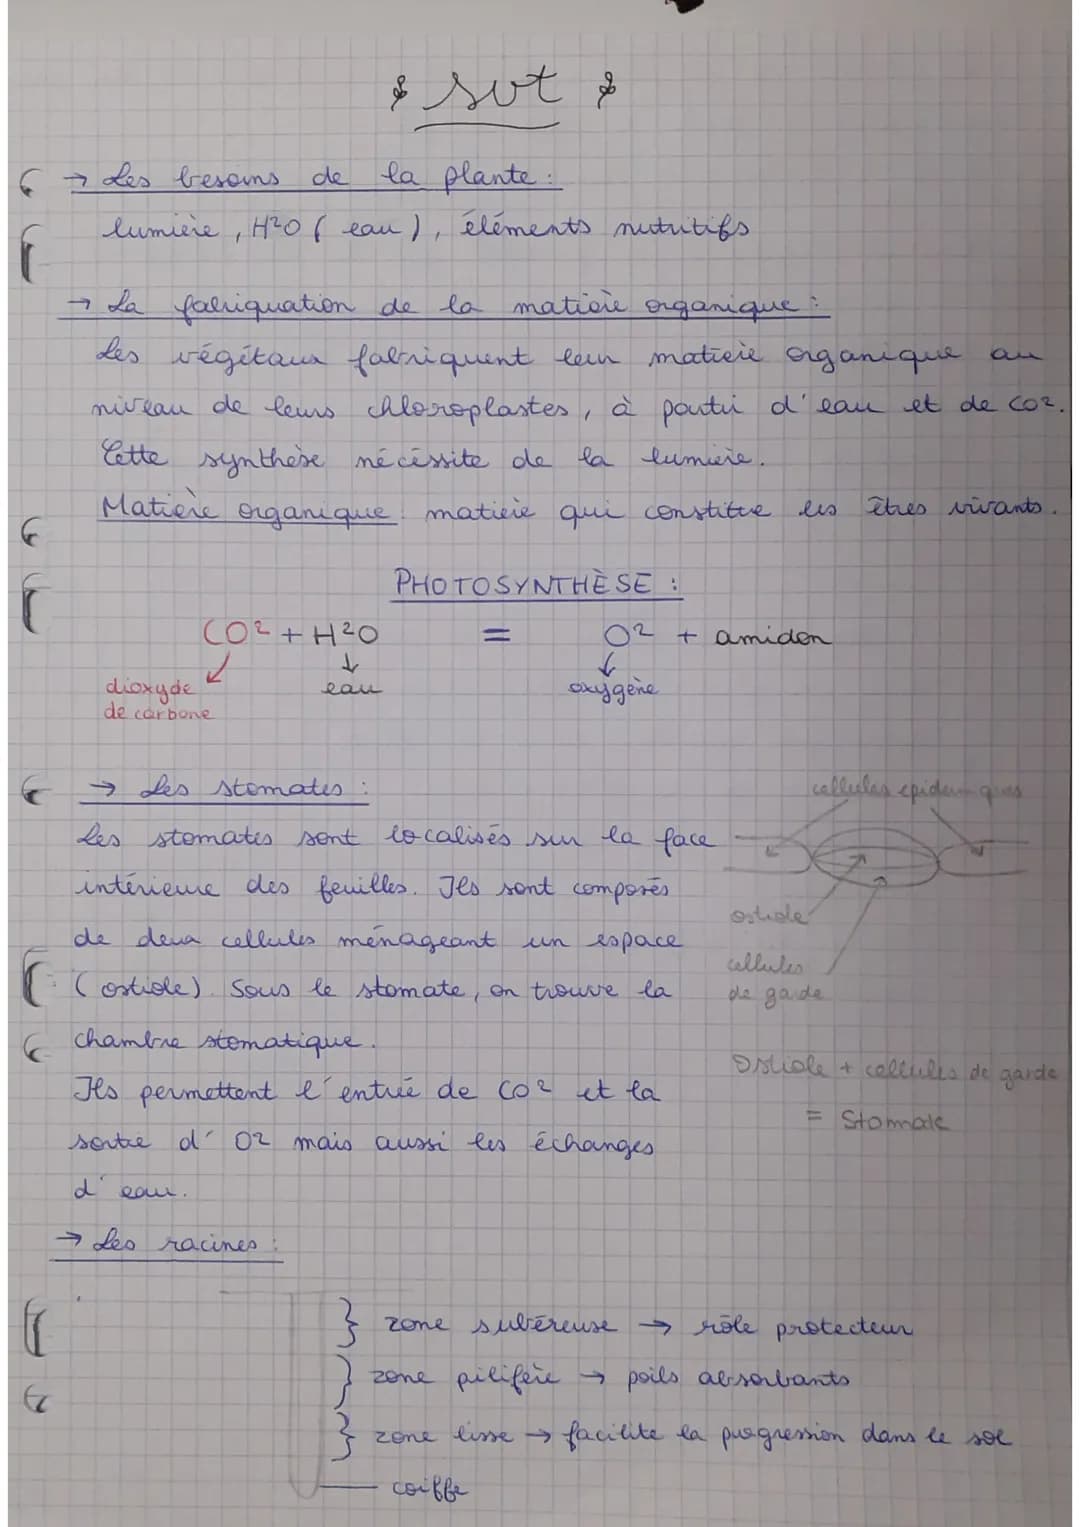 svt
→ Les besoins de la plante :
lumière, H²O ( eau ), éléments nutritifs
→ La fabriquation de la matière organique :
Les végétaux fabriquent leur matière organique au
niveau de leurs chloroplastes, à partir d'eau et de CO².
Cette synthèse nécéssite de la lumière.
Matière organique : matière qui constitue les êtres vivants.
PHOTOSYNTHÈSE :
CO² + H²O = O² + amidon
dioxyde
de carbone
eau
oxygène
→ Les stomates :
Les stomates sont localisés sur la face
intérieure des feuilles. Ils sont composés
de deux cellules ménageant un espace
( ostiole). Sous le stomate, on trouve la
chambre stomatique.
Ils permettent l'entrée de CO² et la
sortie d' O² mais aussi les échanges
d'eau.
cellules épidermiques
ostiole
cellules
de garde
Ostiole + cellules de garde
= Stomate
→ Les racines :
} zone subéreuse → rôle protecteur
} zone pilifère → poils absorbants
} zone lisse → facilite la progression dans le sol
coiffe